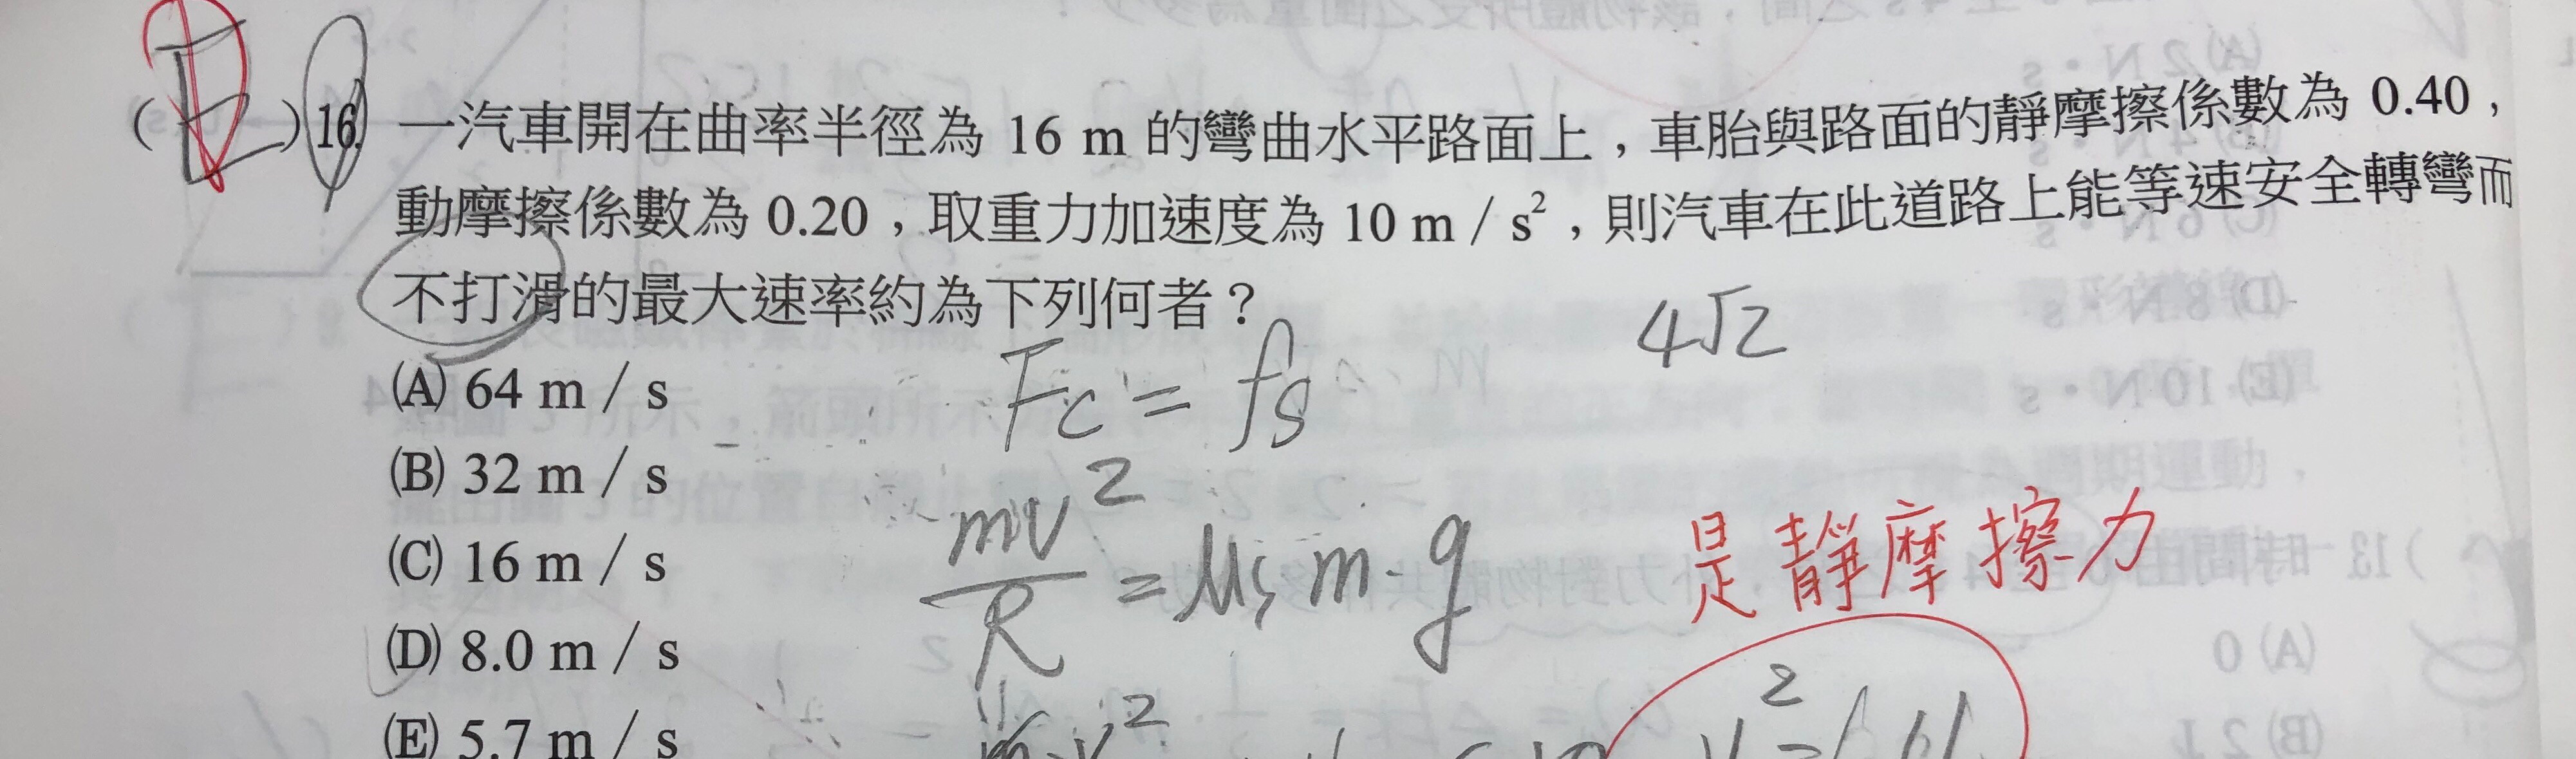 (E)16. 一汽車開在曲率半徑為 16 m 的彎曲水平路面上，車胎與路面的靜摩擦係數為 0.40，
動摩擦係數為 0.20，取重力加速度為 10 m / s²，則汽車在此道路上能等速安全轉彎而
不打滑的最大速率約為下列何者？
4√2
(A) 64 m / s
Fc = fs
(B) 32 m / s
mv²/R = μs m · g
是靜摩擦力
(C) 16 m / s
(D) 8.0 m / s
(E) 5.7 m / s